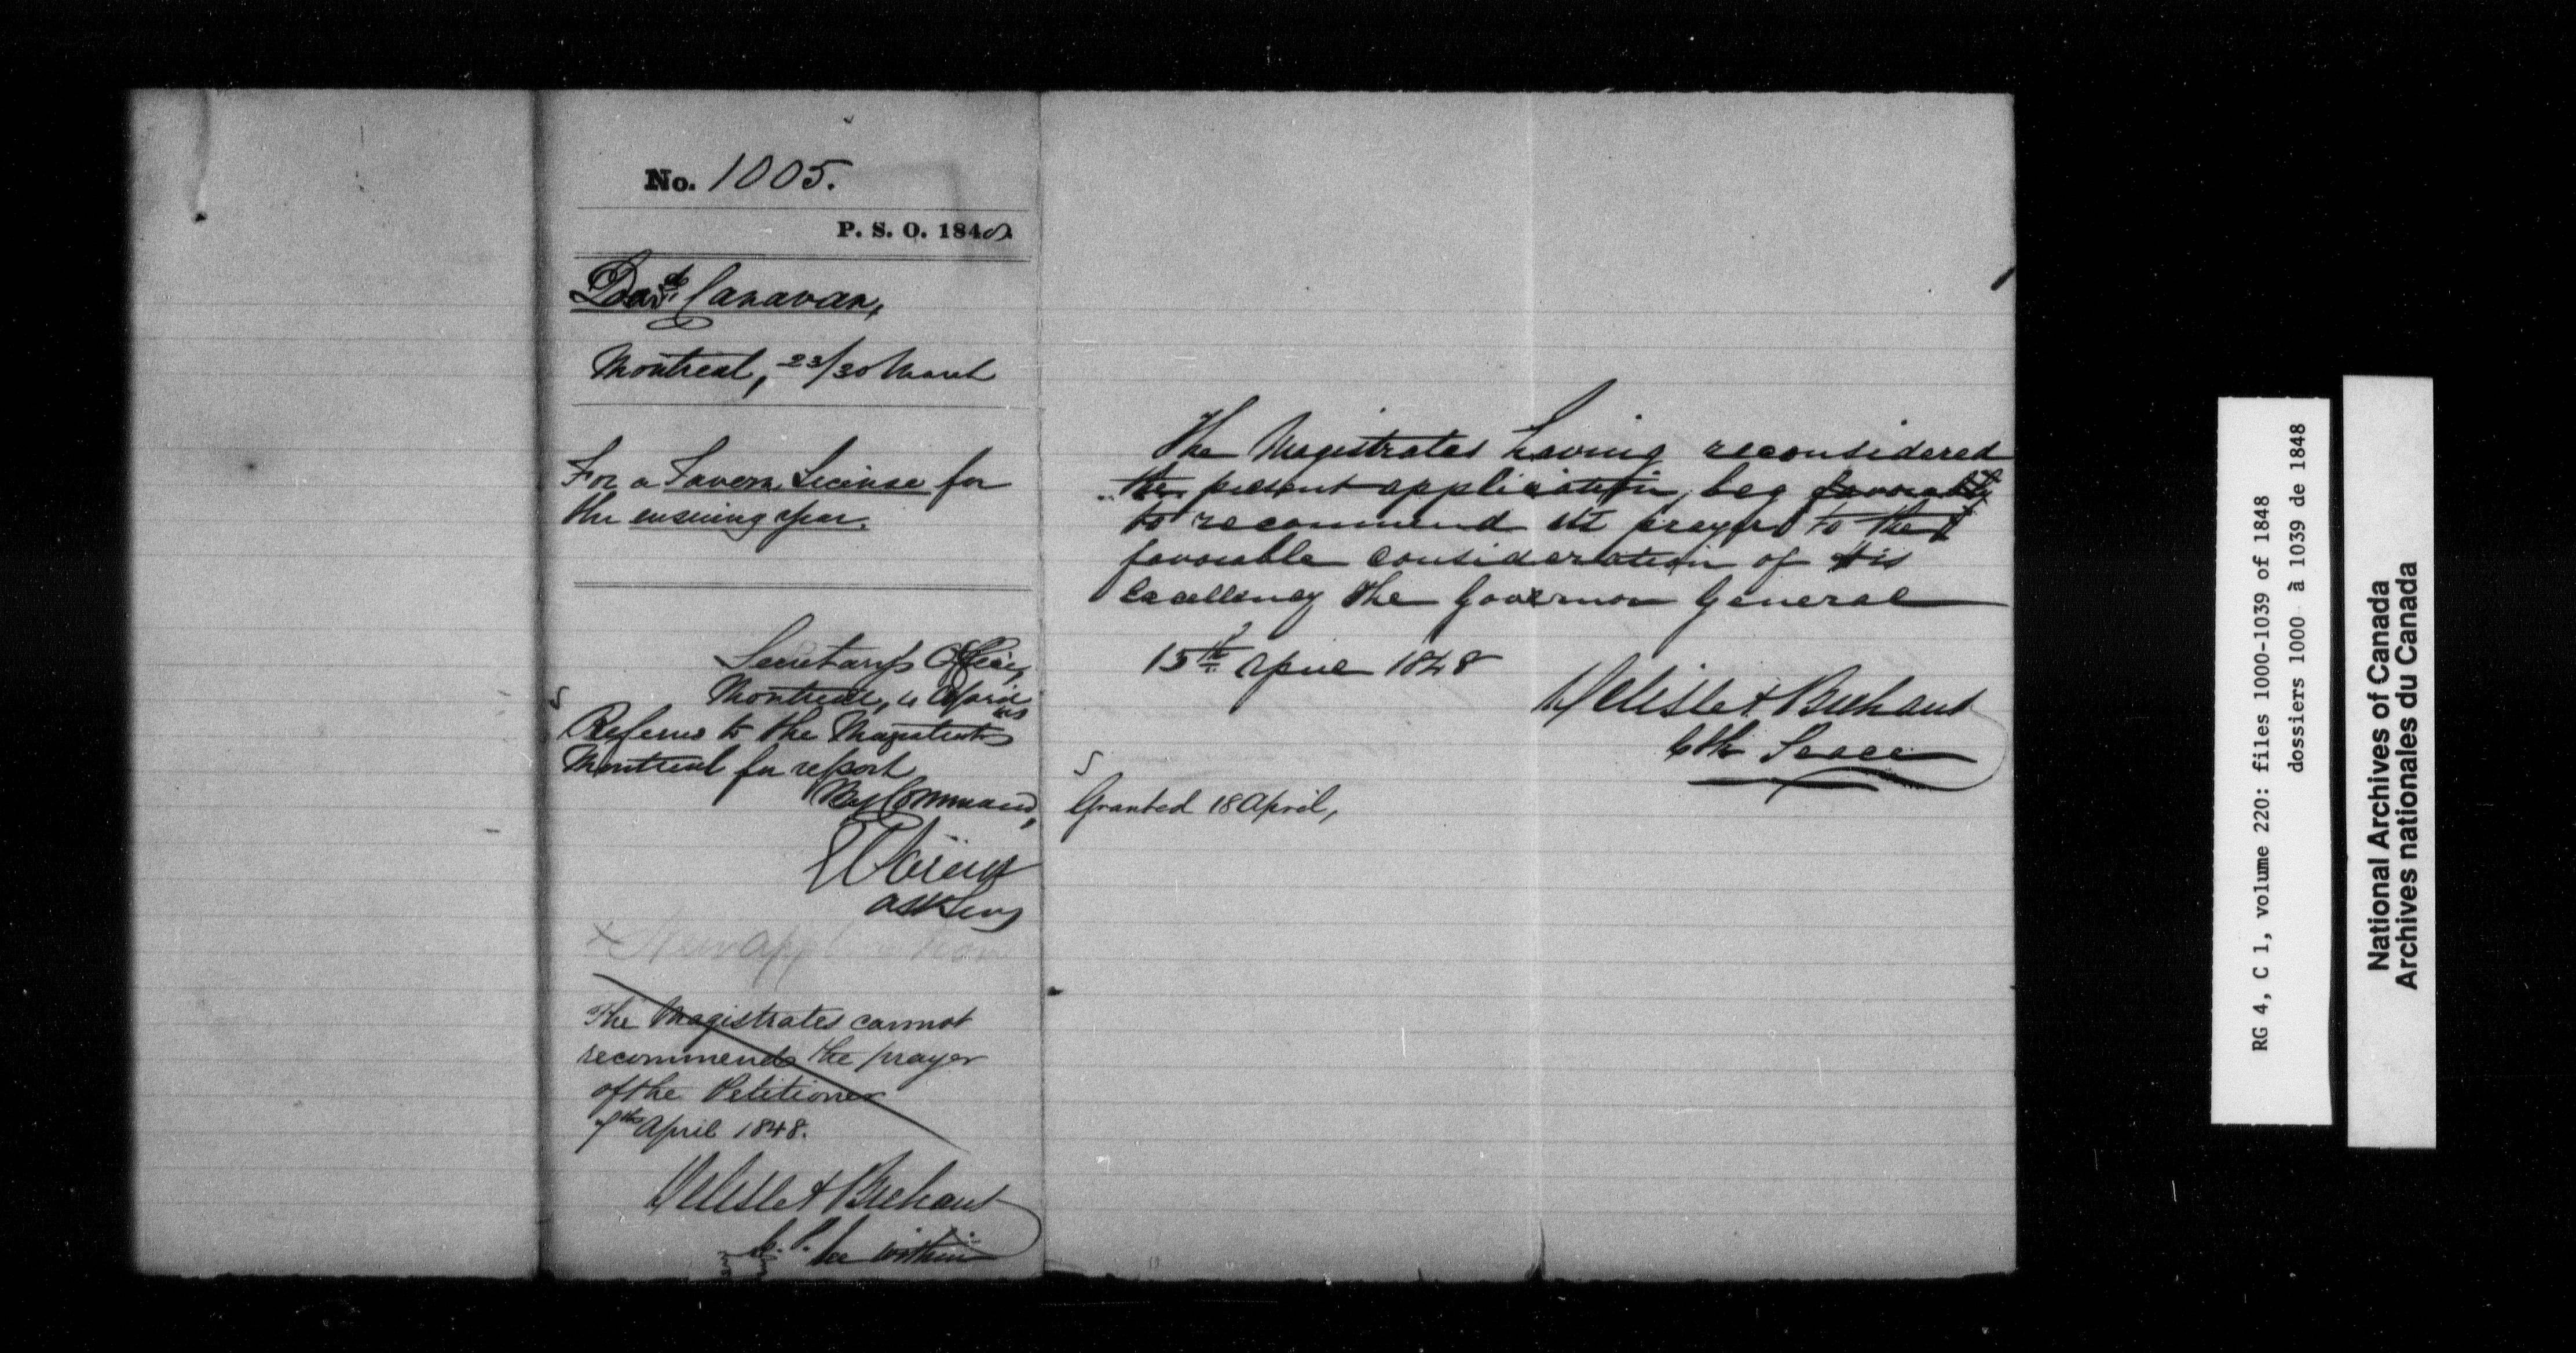 No. 1005.
P. S. O. 1848
Davd. Canavan,
Montreal, 23/30 March
For a Tavern License for
the ensuing year.
Secretary's Office,
Montreal, 4 April
Referred to the Magistrates
Montreal for report
By Command,
Asst Secy
x New application
The Magistrates cannot
recommend the prayer
of the Petitioner
7th April 1848.
Delisle & Brehaut
C. P. see within
The Magistrates having reconsidered
the present application, beg favorably
to recommend its prayer to the
favorable consideration of His
Excellency the Governor General
15th April 1848
Delisle & Brehaut
C Peace
Granted 18 April,
RG 4, C 1, volume 220: files 1000-1039 of 1848
dossiers 1000 à 1039 de 1848
National Archives of Canada
Archives nationales du Canada